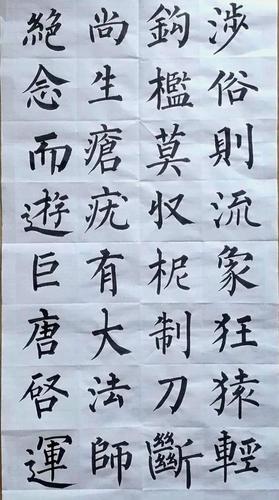 涉俗則流象狂猿輕
鈎檻莫収柅制刀斷
尚生瘡疣有大法師
絕念而遊巨唐啓運